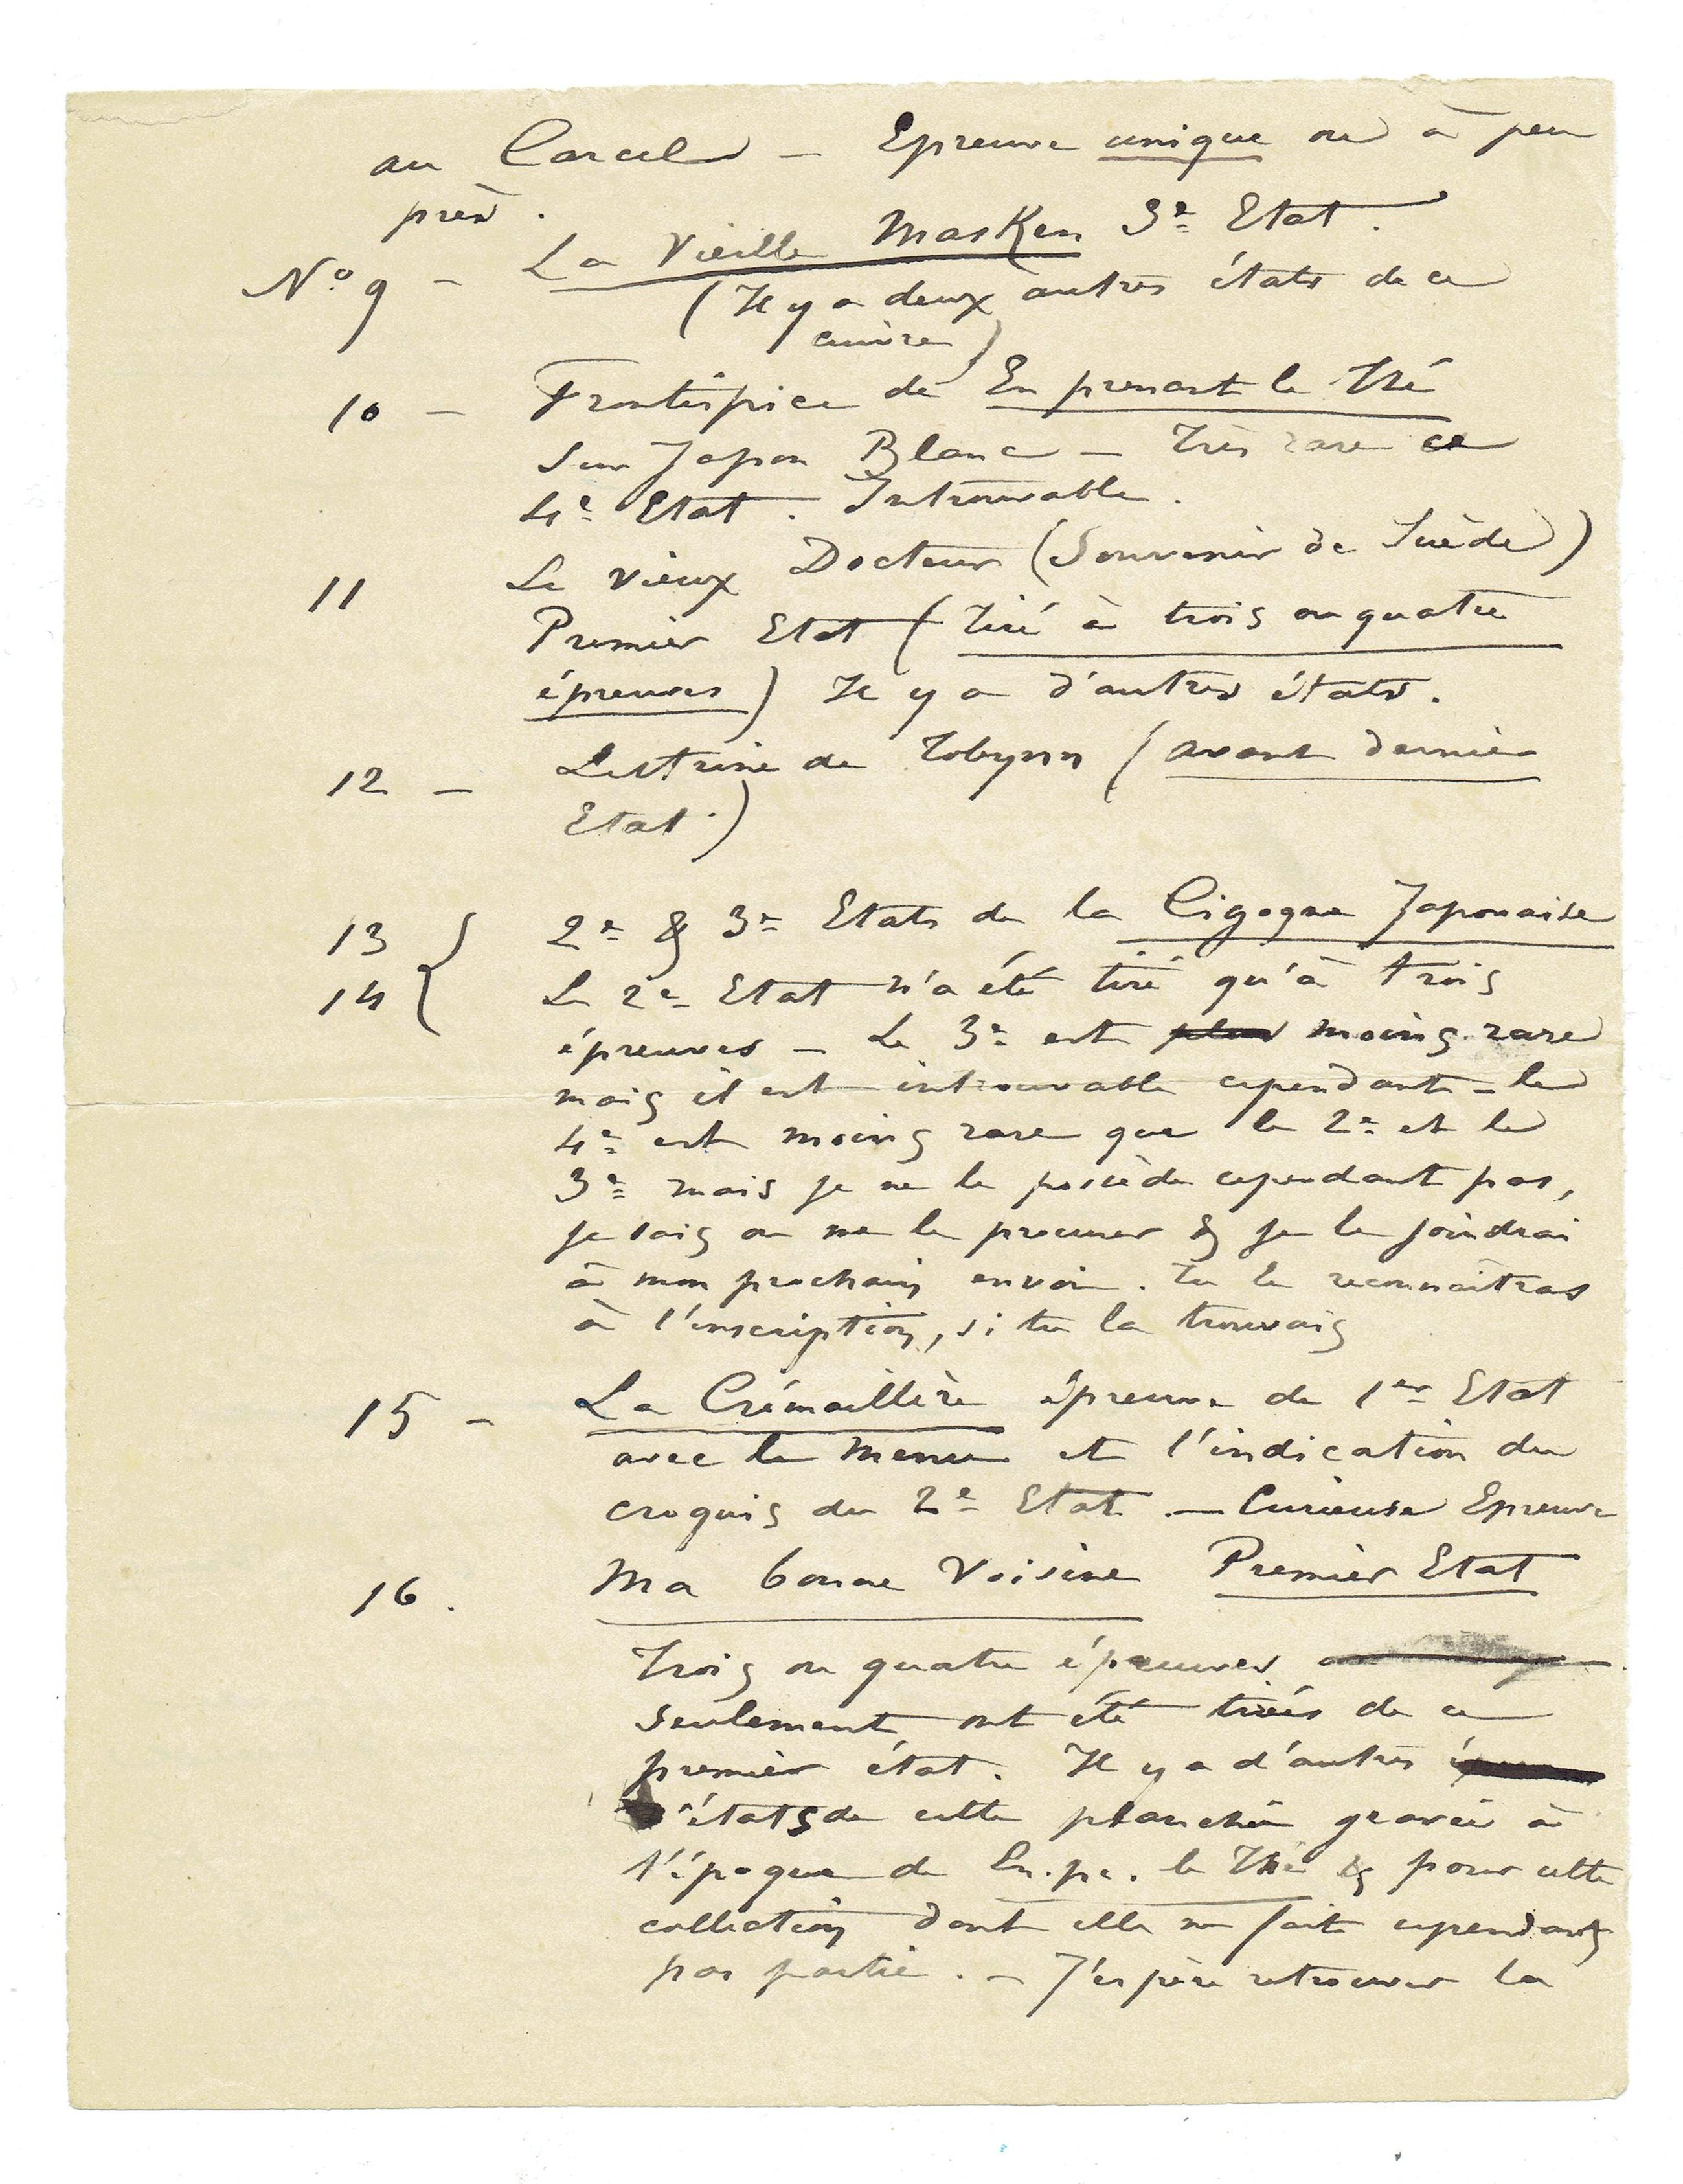 au Carcel – Epreuve unique ou à peu
près.
N° 9 – La Vieille Masken 3e Etat.
(Il y a deux autres états de ce
cuivre)
10 – Frontispice de En prenant le Thé
sur Japon Blanc – Très rare ce
4e Etat. Introuvable.
11 Le vieux Docteur (Souvenir de Suède)
Premier Etat (Tiré à trois ou quatre
épreuves) Il y a d'autres états.
12 – de (avant dernier
Etat.)
13 2e & 3e Etats de la Cigogne Japonaise
14 Le 2e Etat n'a été tiré qu'à trois
épreuves – Le 3e est plus moins rare
mais il est introuvable cependant – le
4e est moins rare que le 2e et le
3e mais je ne le possède cependant pas,
je sais ou me le procurer & je le joindrai
à mon prochain envoi. Tu le reconnaîtras
à l'inscription, si tu la trouvais
15 – La Crémaillère épreuve de 1er Etat
avec le menu et l'indication du
croquis du 2e Etat. – Curieuse Epreuve
16. Ma bonne Voisine Premier Etat
Trois ou quatre épreuves
seulement ont été tirées de ce
premier état. Il y a d'autres
états de cette planche gravée à
l'époque de En. pr. le Thé & pour cette
collection dont elle ne fait cependant
pas partie. – J'espère retrouver la